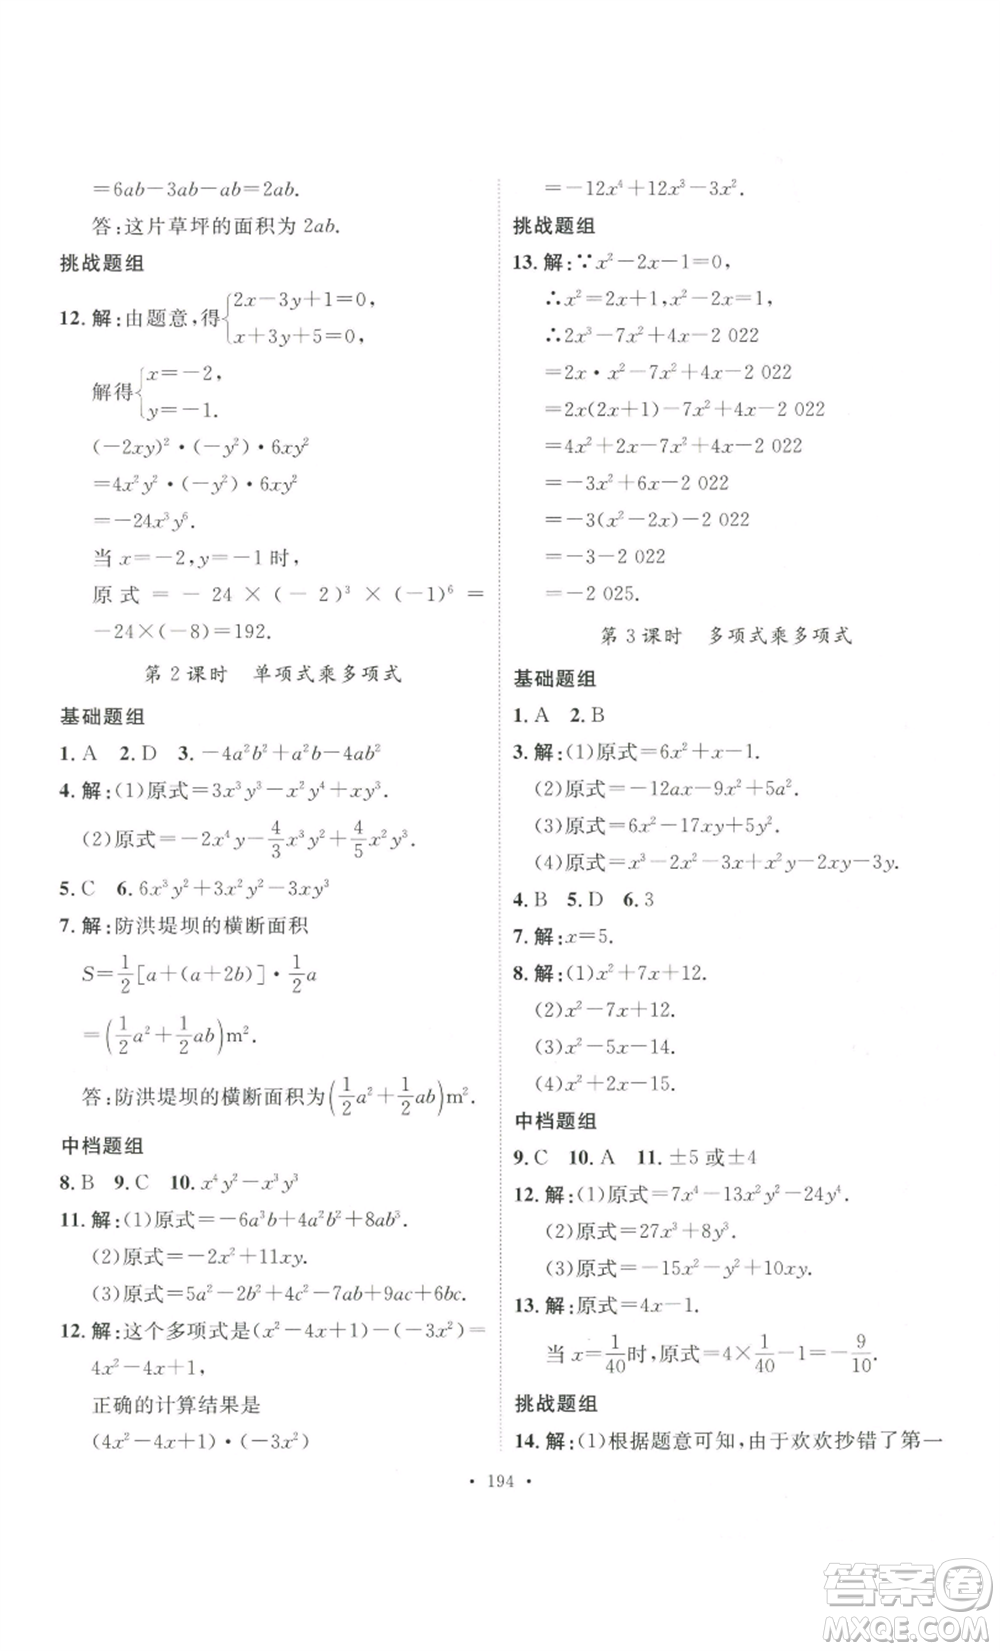 =6ab-3ab-ab=2ab.
答:这片草坪的面积为 2ab.
挑战题组
12. 解:由题意,得{2x-3y+1=0,
x+3y+5=0,
解得{x=-2,
y=-1.
(-2xy)²·(-y²)·6xy²
=4x²y²·(-y²)·6xy²
=-24x³y⁶.
当 x=-2,y=-1 时,
原式=-24×(-2)³×(-1)⁶=
-24×(-8)=192.
第 2 课时 单项式乘多项式
基础题组
1. A 2. D 3. -4a²b²+a²b-4ab²
4. 解:(1)原式=3x³y³-x²y⁴+xy³.
(2)原式=-2x⁴y-4/3x³y²+4/5x²y³.
5. C 6. 6x³y²+3x²y²-3xy³
7. 解:防洪堤坝的横断面积
S=1/2[a+(a+2b)]·1/2a
=(1/2a²+1/2ab)m².
答:防洪堤坝的横断面积为(1/2a²+1/2ab)m².
中档题组
8. B 9. C 10. x⁴y²-x³y³
11. 解:(1)原式=-6a³b+4a²b²+8ab³.
(2)原式=-2x²+11xy.
(3)原式=5a²-2b²+4c²-17ab+9ac+6bc.
12. 解:这个多项式是(x²-4x+1)-(-3x²)=
4x²-4x+1,
正确的计算结果是
(4x²-4x+1)·(-3x²)
=-12x⁴+12x³-3x².
挑战题组
13. 解:∵x²-2x-1=0,
∴x²=2x+1,x²-2x=1,
∴2x³-7x²+4x-2 022
=2x·x²-7x²+4x-2 022
=2x(2x+1)-7x²+4x-2 022
=4x²+2x-7x²+4x-2 022
=-3x²+6x-2 022
=-3(x²-2x)-2 022
=-3-2 022
=-2 025.
第 3 课时 多项式乘多项式
基础题组
1. A 2. B
3. 解:(1)原式=6x²+x-1.
(2)原式=-12ax-9x²+5a².
(3)原式=6x²-17xy+5y².
(4)原式=x³-2x²-3x+x²y-2xy-3y.
4. B 5. D 6. 3
7. 解:x=5.
8. 解:(1)x²+7x+12.
(2)x²-7x+12.
(3)x²-5x-14.
(4)x²+2x-15.
中档题组
9. C 10. A 11. ±5 或±4
12. 解:(1)原式=7x⁴-13x²y²-24y⁴.
(2)原式=27x³+8y³.
(3)原式=-15x²-y²+10xy.
13. 解:原式=4x-1.
当 x=1/40时,原式=4×1/40-1=-9/10.
挑战题组
14. 解:(1)根据题意可知,由于欢欢抄错了第一
· 194 ·
答案卷
MXQE.COM